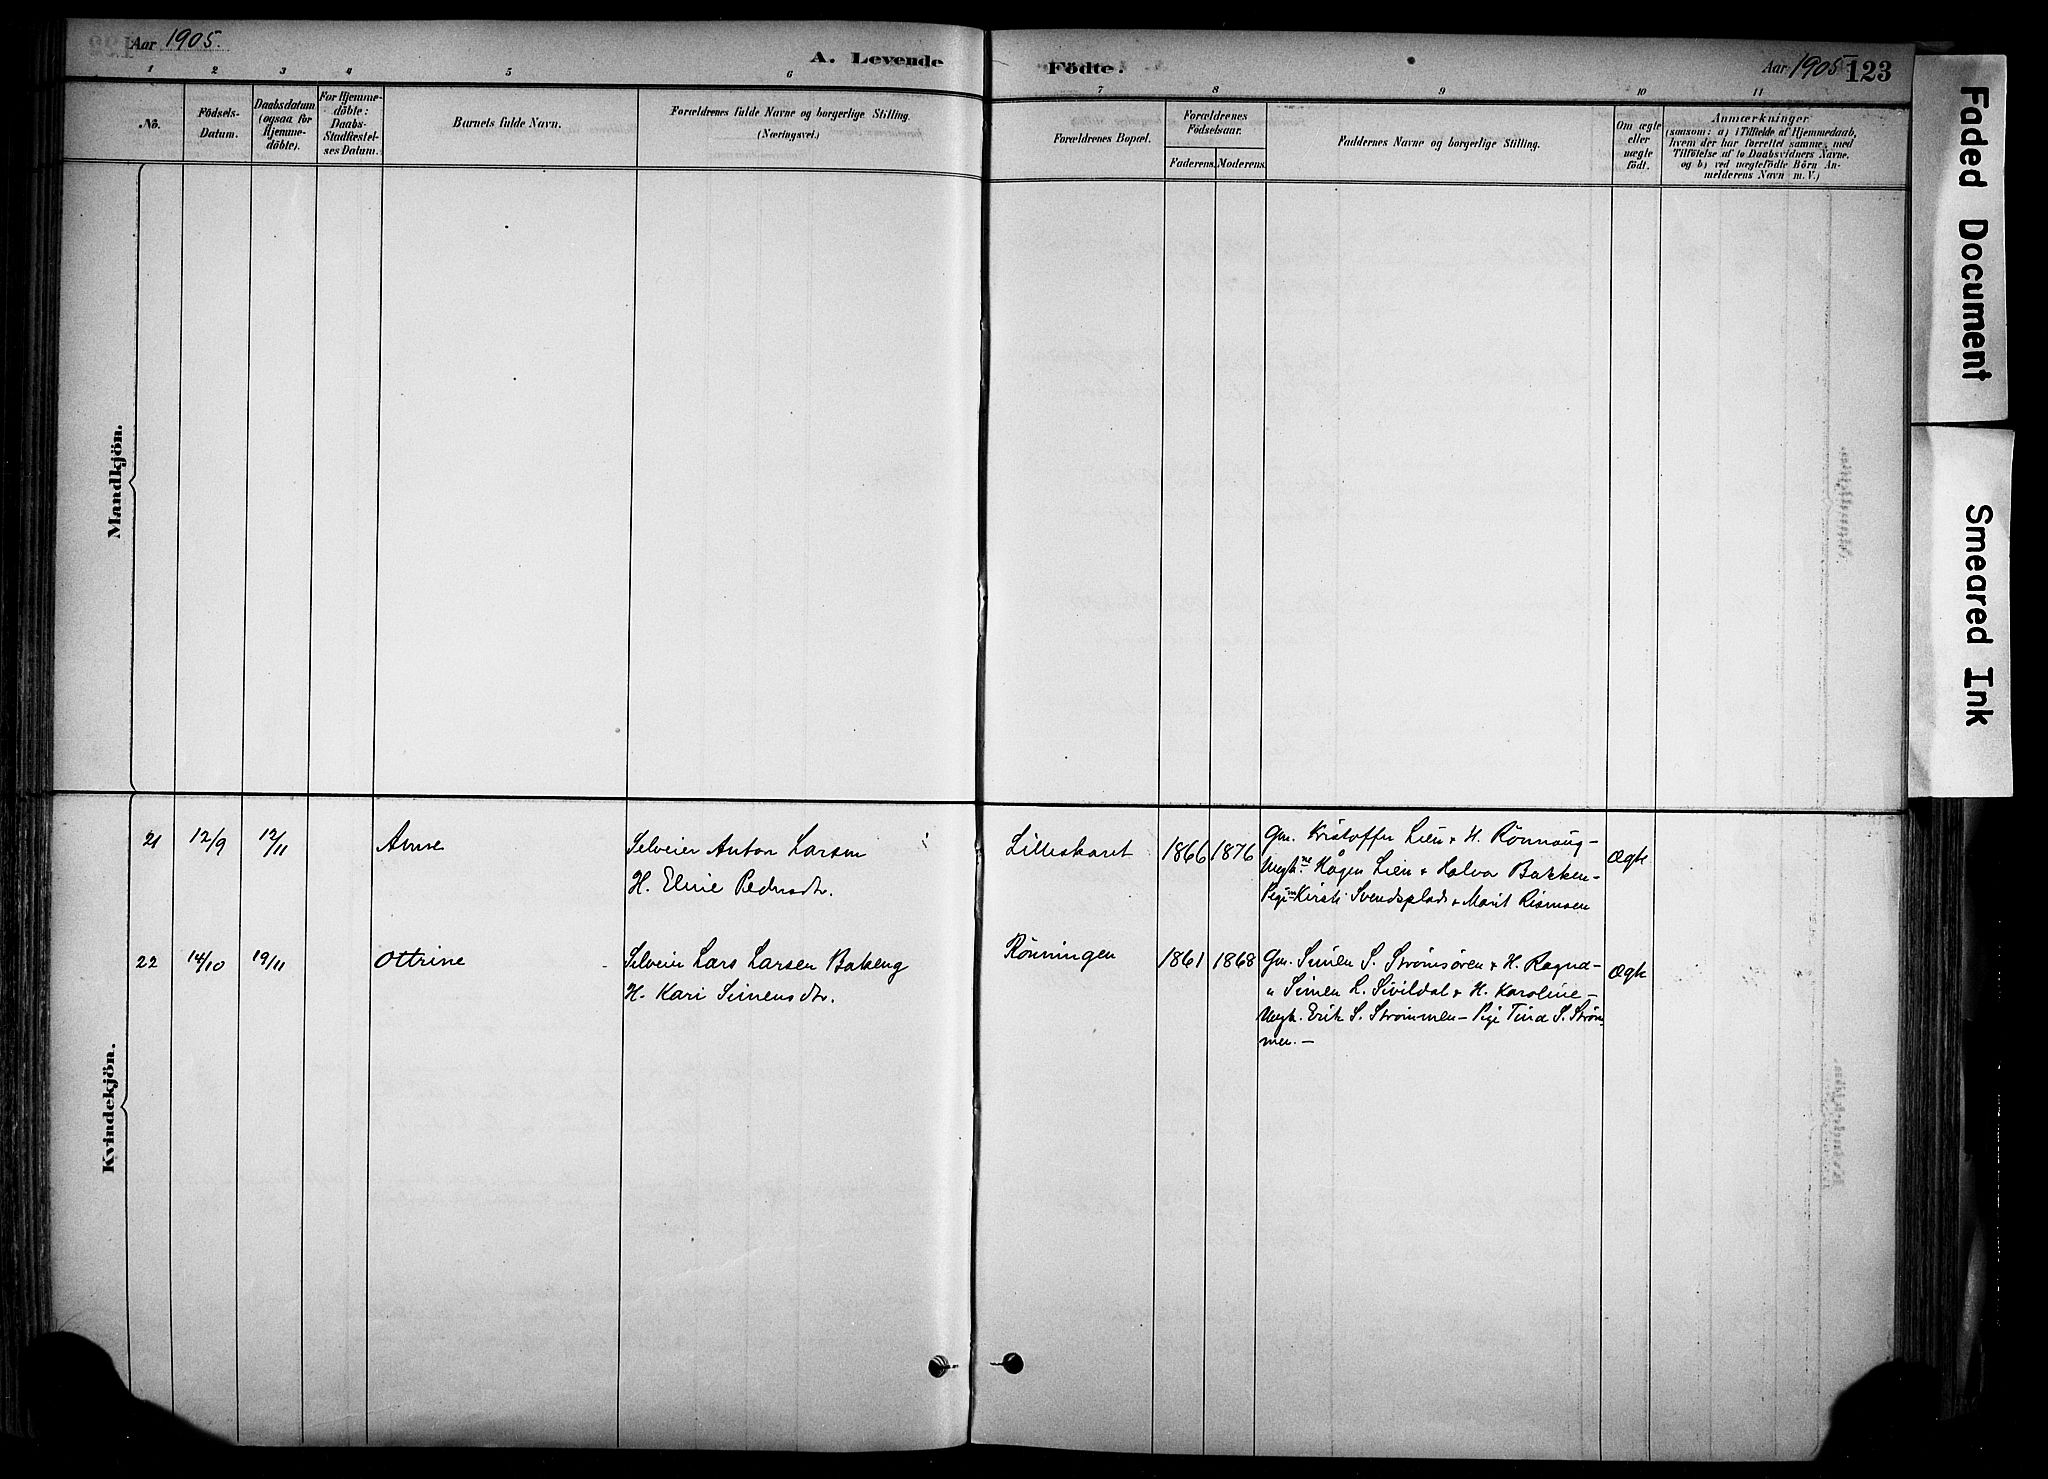 Aar 1905.
A. Levende
Födte.
Aar 1905
123
1 2 3 4 5 6 7 8 9 10 11
No.
Födsels-
Datum.
Daabsdatum
(ogsaa for
Hjemme-
döbte).
For Hjemme-
döbte:
Daabs-
Stadfæstel-
ses Datum.
Barnets fulde Navn.
Forældrenes fulde Navne og borgerlige Stilling.
(Næringsvei.)
Forældrenes Bopæl.
Forældrenes
Födselsaar.
Faderens. Moderens.
Faddernes Navne og borgerlige Stilling.
Om ægte
eller
uægte
födt.
Anmærkninger
(saasom: a) i Tilfælde af Hjemmedaab,
hvem der har forrettet samme, med
Tilföielse af to Daabsvidners Navne,
og b) ved uægtefödte Börn An-
melderens Navn m. V.)
Mandkjön.
Kvindekjön.
21 12/9 12/11 Anne
Selveier Anton Larsen
H. Eline Pedersdtr.
Lilleskaret 1866 1876
Gm. Kristoffer Lien & H. Rönnaug-
Ungk.ne Hågen Lien & Halvor Bakken-
Pige-Kirsti Svendsplads & Marit
Ægte
22 14/10 19/11 Ottrine
Selveier Lars Larsen Bakeng
H. Kari Simensdtr.
Rönningen 1861 1868
Gm. Simen S. Strömsören & H. Ragna-
" Simen L. Sivildal & H. Karoline-
Ungk. Erik S. Strömmen- Pige Tina S. Ström-
men.-
Ægte
Faded Document
Smeared Ink